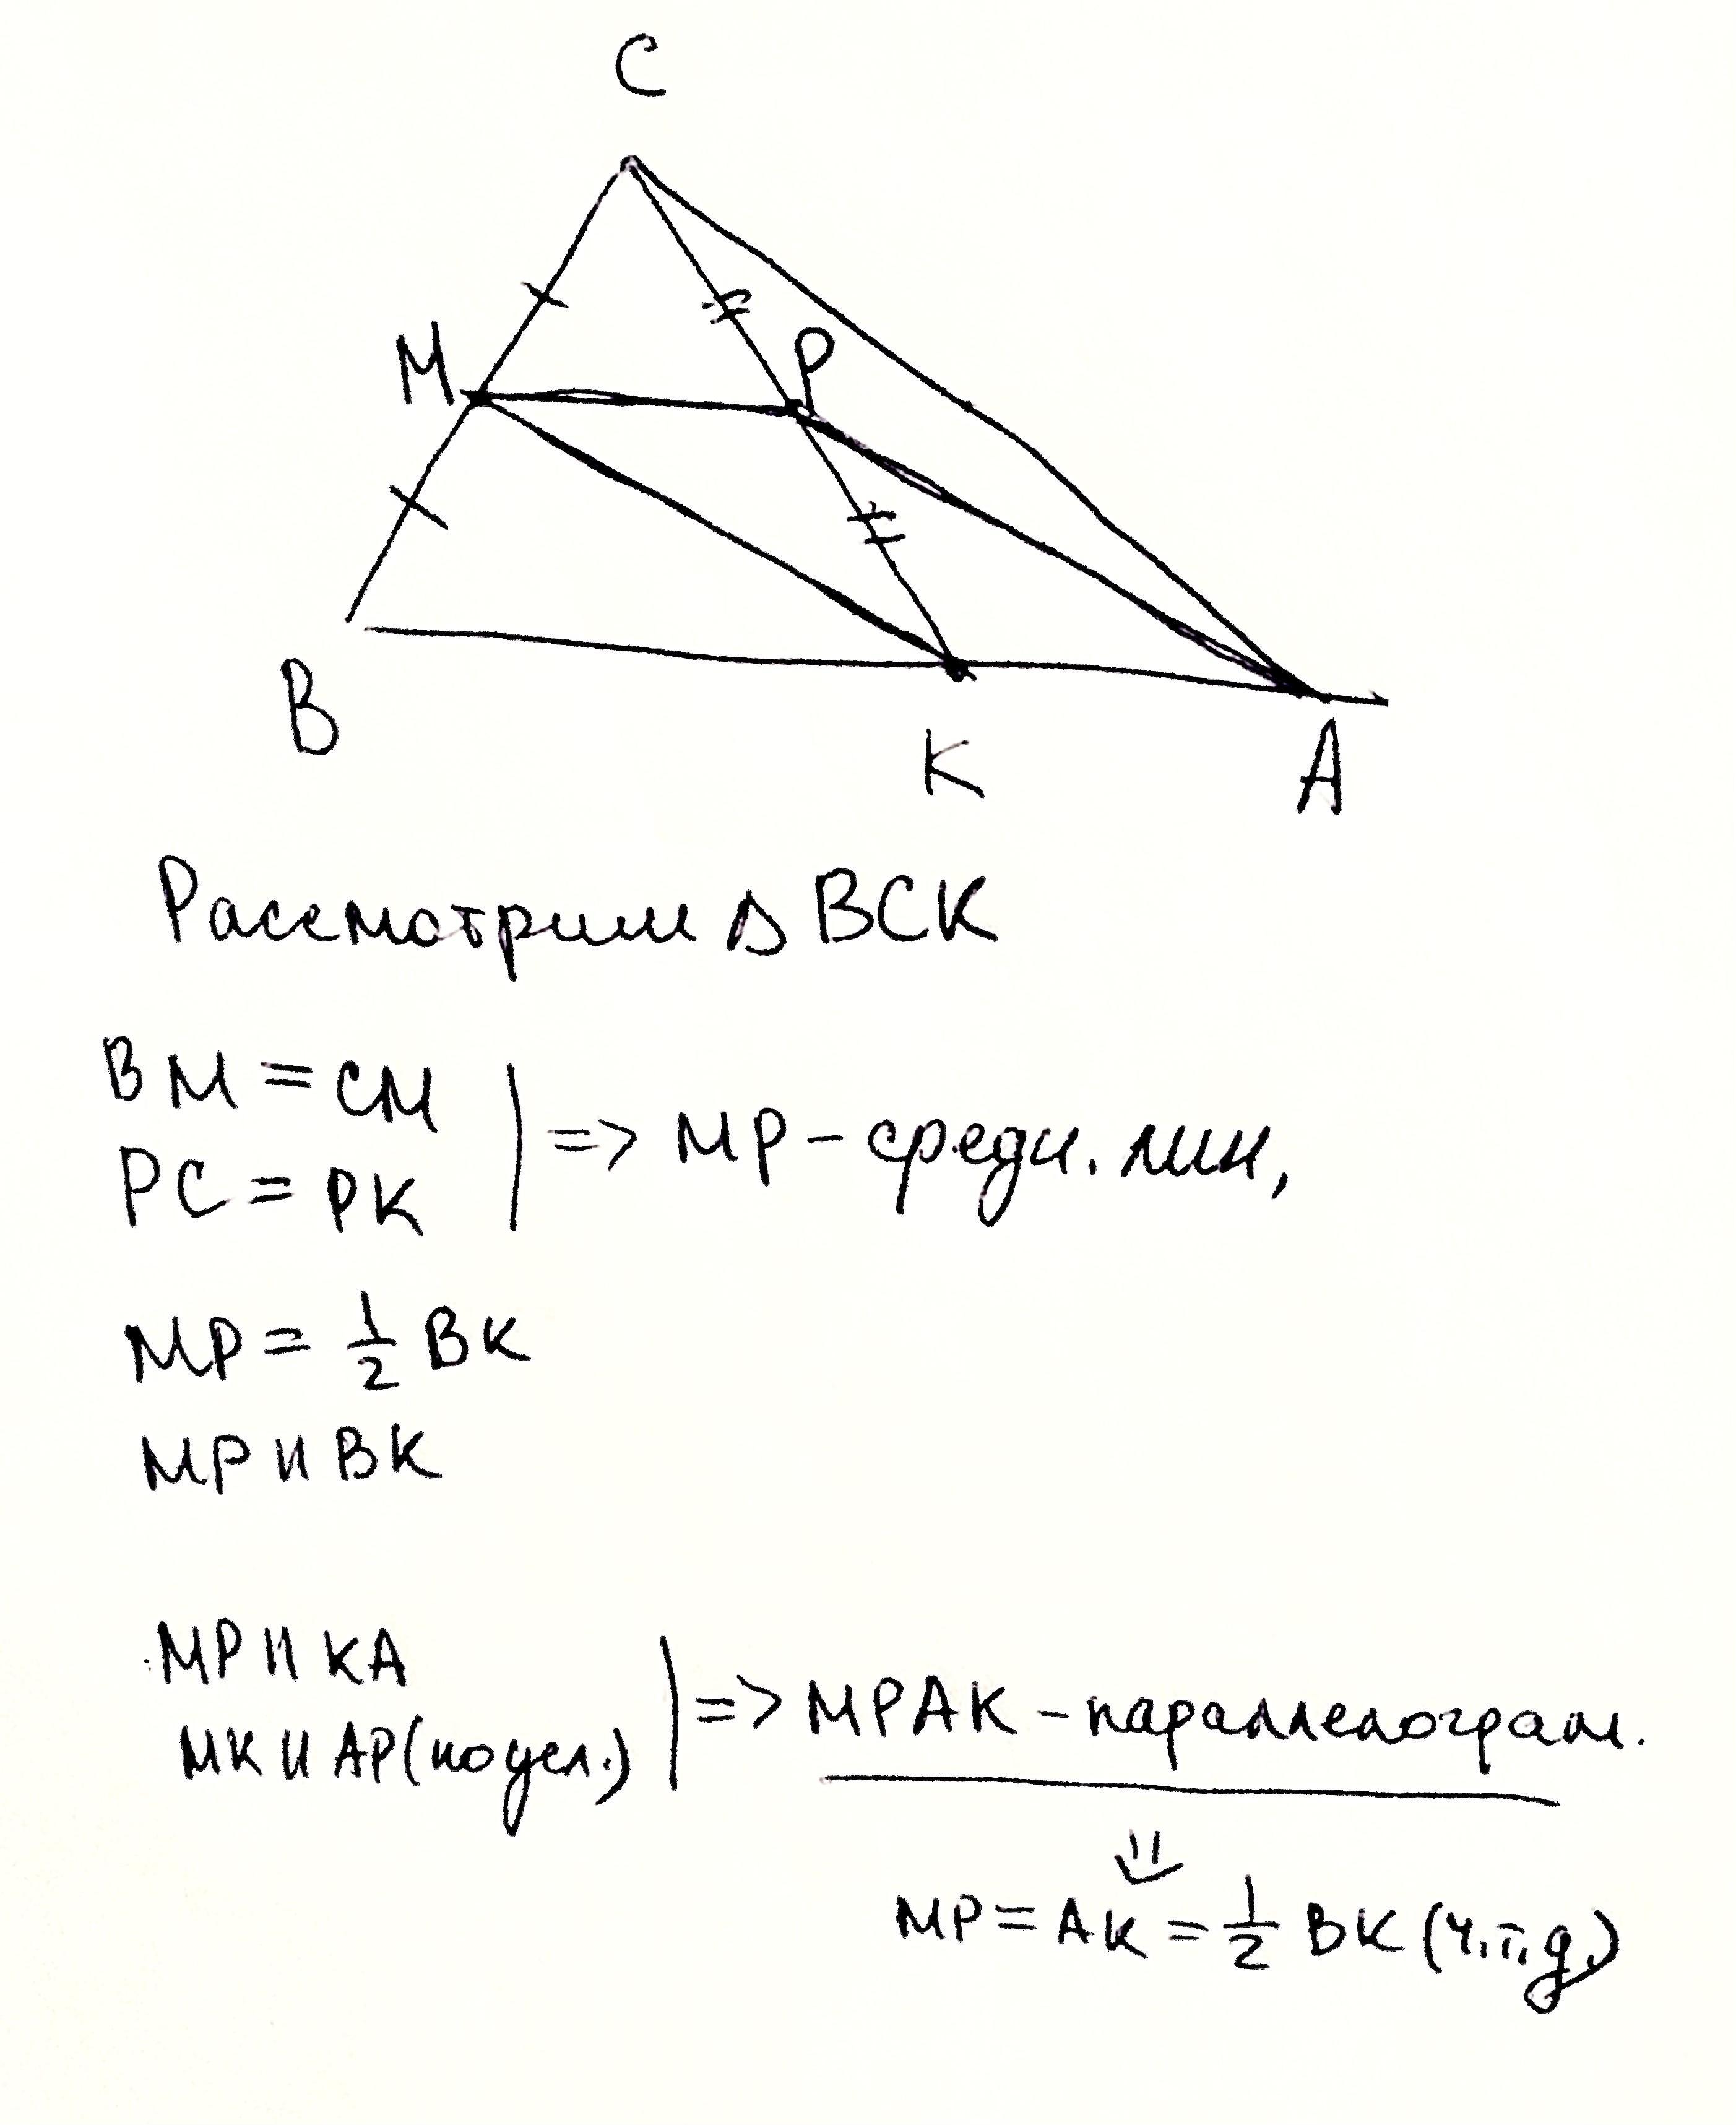 C
M
P
B
K
A
Рассмотрим Δ BCK
BM = CM
PC = PK
=> MP - средн. лин,
MP = 1/2 BK
MP || BK
MP || KA
MK || AP (по усл.)
=> MPAK - параллелограм.
⇓
MP = AK = 1/2 BK (ч.т.д.)